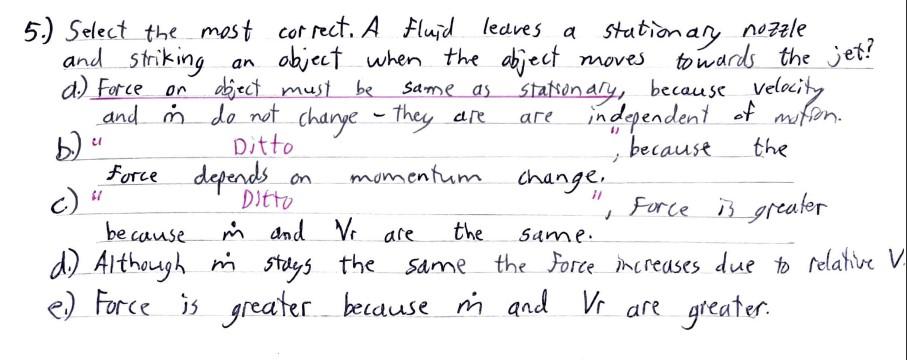 5.) Select the most correct. A fluid leaves a stationary nozzle
and striking an object when the object moves towards the jet?
a.) Force on object must be same as stationary, because velocity
and ṁ do not change - they are are independent of motion.
b.) " Ditto ", because the
force depends on momentum change.
c.) " Ditto ", Force is greater
because ṁ and Vr are the same.
d.) Although ṁ stays the same the force increases due to relative V.
e.) Force is greater because ṁ and Vr are greater.